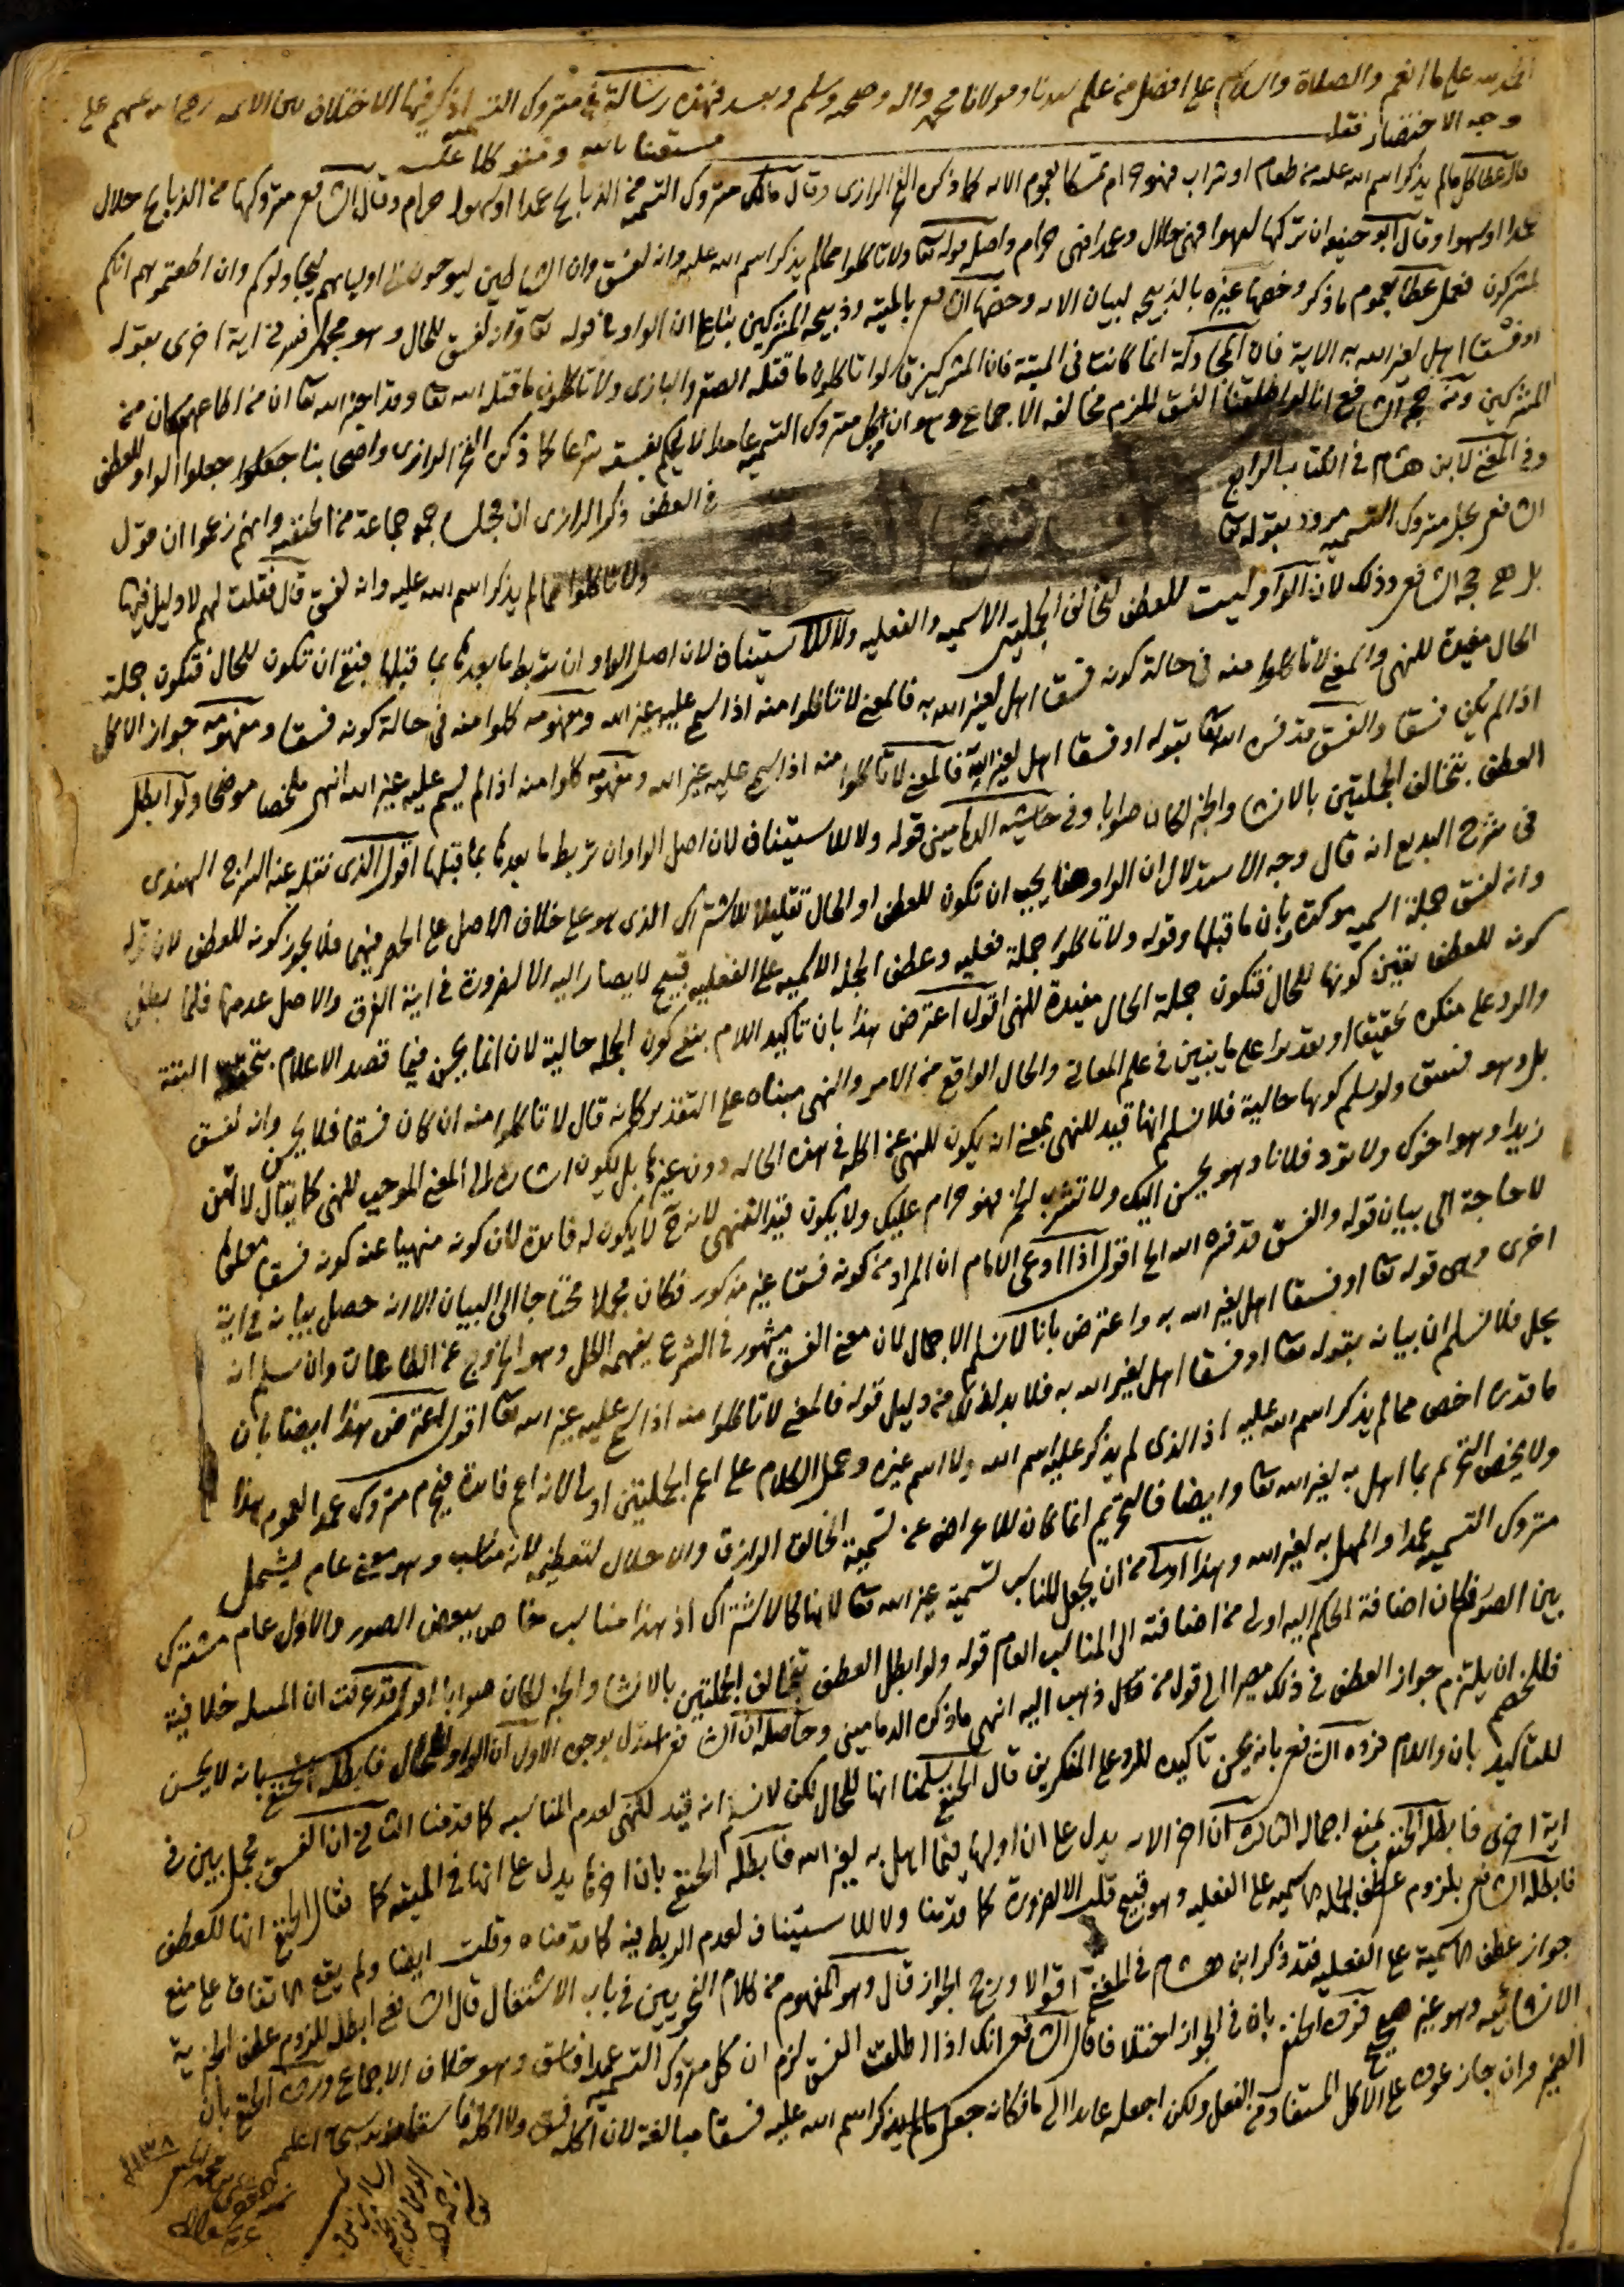 الحمد لله على ما انعم والصلاة والسلام على افضل من علم سيدنا ومولانا محمد واله وصحبه وسلم وبعد فهذه رسالة في متروك التسمية اذكر فيها الاختلاف بين الائمه رضي الله عنهم على
وجه الاختصار فقلت مستعينا بالله ومتوكلا عليه
قال عطا كل ما لم يذكر اسم الله عليه من طعام او شراب فهو حرام تمسكا بعموم الايه كما ذكره الفخر الرازى وقال مالك متروك التسمية من الذبايح عمدا او سهوا حرام وقال الشافعي متروكها من الذبايح حلال
عمدا او سهوا وقال ابو حنيفه ان تركها سهوا فهى حلال وعمدا فهى حرام واصله قوله تعا ولا تاكلوا مما لم يذكر اسم الله عليه وانه لفسق وان الشياطين ليوحون الى اوليايهم ليجادلوكم وان اطعتموهم انكم
لمشركون فعمل عطا بعموم ما ذكر وخصها غيره بالذبيحه لبيان الايه وخصها الشافعي بالميتة وذبيحة المشركين بناء على ان الواو في قوله تعا وانه لفسق للحال وهو مجمل فسر في اية اخرى بقوله
او فسقا اهل لغير الله به الاية فان المجادلة انما كانت فى الميتة فان المشركين قالوا تاكلون ما قتله الصقر والبازى ولا تاكلون ما قتله الله تعا وقد اخبر الله تعا ان من اطاعهم كان من
المشركين ومن حجة الشافعي انا لو اطلقنا الفسق للزم مخالفه الاجماع وهو ان اكل متروك التسمية عامدا لا يحكم بفسقه شرعا كما ذكره الفخر الرازى واصحابنا جعلوا الواو للعطف
وفى المغني لابن هشام فى الكتاب الرابع فى العطف ذكر الرازى ان مجلسا جمعه جماعة من الحنفيه وانهم زعموا ان قول
الشافعى بحل متروك التسميه مردود بقوله تعا ولا تاكلوا مما لم يذكر اسم الله عليه وانه لفسق قال فقلت لهم لا دليل فيها
بل هى حجه الشافعي وذلك لان الواو ليست للعطف لتخالف الجملتين الاسميه والفعليه ولا للاستيناف لان اصل الواو ان تربط ما بعدها بما قبلها فبقي ان تكون للحال فتكون جملة
الحال مقيدة للنهى والمعنى لا تاكلوا منه فى حالة كونه فسقا ومفهومه جواز الاكل
اذا لم يكن فسقا والفسق قد فسره الله تعا بقوله او فسقا اهل لغير الله به فالمعنى لا تاكلوا منه اذا سمي عليه غير الله ومفهومه كلوا منه اذا لم يسم عليه غير الله انتهى ملخصا موضحا ولو ابطل
العطف بتخالف الجملتين بالانشا والخبر لكان صوابا وفى حاشية الدمامينى قوله ولا للاستيناف لان اصل الواو ان تربط ما بعدها بما قبلها اقول الذى نقله عنه السراج الهندى
فى شرح البديع انه قال وجه الاستدلال ان الواو هنا يجب ان تكون للعطف او الحال تقليلا للاشتراك الذى هو على خلاف الاصل على الحصر فيهما فلا يجوز كونه للعطف لان قوله
وانه لفسق جملة اسميه موكدة بان ما قبلها وقوله ولا تاكلوا جملة فعليه وعطف الجمله الاسميه على الفعليه قبيح لا يصار اليه الا لضرورة فى اية الفرق والاصل عدمها فلما بطل
كونه للعطف تعين كونها للحال فتكون جملة الحال مقيدة للنهى اقول اعترض هذا بان تاكيد اللام يمنع كون الجمله حالية لانه انما يحسن فيما قصد الاعلام بتحققه البتة
والرد على منكره تحقيقا او تقديرا على ما يتبين فى علم المعاني والحال الواقع من الامر والنهى مبناه على التقدير كانه قال لا تاكلوا منه ان كان فسقا فلا يحسن وانه لفسق
بل وهو فسق ولو سلم كونها حالية فلا نسلم انها قيد للنهى بمعني انه يكون للنهى عن اكله فى هذه الحاله دون غيرها بل يكون اشارة الى المعنى الموجب للنهى كما يقال لا تهن
زيدا وهو اخوك ولا تود فلانا وهو يحسن اليك ولا تشرب الخمر فهو حرام عليك ولا يكون قيدا للنهى لانه ح لا يكون له فايدة لان كونه منهيا عنه كونه فسقا معلوما
لا حاجة الى بيان قوله والفسق قد فسره الله الخ اقول اذا ادعى الامام ان المراد من كونه فسقا غير مذكور فكان مجملا محتاجا الى البيان الا انه حصل بيانه فى اية
اخرى وهى قوله تعا او فسقا اهل لغير الله به واعترض بانا لا نسلم الاجمال لان معنى الفسق مشهور فى الشرع يفهمه الكل وهو الخروج عن الطاعات وان سلم انه
مجمل فلا نسلم ان بيانه بقوله تعا او فسقا اهل لغير الله به فلا بد لذلك من دليل قوله فالمعنى لا تاكلوا منه اذا سمي عليه غير الله تعا اقول اعترض هذا ايضا بان
ما قدره اخص مما لم يذكر اسم الله عليه اذ الذى لم يذكر عليه اسم الله ولا اسم غيره وحمل الكلام على اعم الجملتين اولى لانه اعم فايدة فيحرم متروك عمدا لعموم هذا
ولا يخص التحريم بما اهل به لغير الله تعا وايضا فالتحريم انما كان للاعراض عن تسمية الخالق الرازق والاخلال لتعظيمه لانه مناسب وهو معني عام يشمل
متروك التسميه عمدا والمهل به لغير الله وهذا اولى من ان يجعل المناسب تسمية غير الله تعا لانها كالاشتراك اذ هذا مناسب خاص ببعض الصور والاول عام مشترك
بين الصور فكان اضافة الحكم اليه اولى من اضافته الى المناسب العام قوله ولو ابطل العطف بتخالف الجملتين بالانشا والخبر لكان صوابا اقول قد عرفت ان المسله خلافية
فللخصم ان يلتزم جواز العطف فى ذلك مصيرا الى قول من ذهب اليه انتهى ما ذكره الدمامينى وحاصله ان الشافعي استدل بوجوه الاول ان الواو للحال فابطله الحنفي بانه لا يحسن
للتاكيد بان واللام فرده الشافعي بانه يحسن تاكيده للرد على المنكرين قال الحنفي سلمنا انها للحال لكن لا نسلم انه قيد للنهى لعدم المناسبه كما قدمنا الثاني ان الفسق مجمل بين فى
اية اخرى فابطله الحنفي بمنع اجماله الثالث ان اخر الايه يدل على ان اولها فيما اهل به لغير الله فابطله الحنفي بان اخرها يدل على انها فى الميته كما فقال الحنفي انها للعطف
فابطله الشافعي بلزوم عطف الجمله الاسميه على الفعليه وهو قبيح قلت الا لضرورة كما قدمنا ولا للاستيناف لعدم الربط فيه كما قدمناه وقلت ايضا ولم يقع الاتفاق على منع
جواز عطف الاسمية على الفعليه فقد ذكر ابن هشام فى المغني اقوالا ورجح الجواز قال وهو المفهوم من كلام النحويين فى باب الاشتغال قال الشافعى ابطله للزوم عطف الخبرية
الانشائيه وهو غير صحيح فرده الحنفي بان فى الجواز اختلافا قال الشافعي انك اذا اطلقت الفسق لزم ان كل متروك التسميه عمدا فاسق وهو خلاف الاجماع ورده الحنفي بان
الضمير وان جاز عوده على الاكل المستفاد من الفعل ولكن اجعله عايدا الى ما فكانه جعل ما لم يذكر اسم الله عليه فسقا مبالغة لان اكله فسق ولا اكله فاسقا والله سبحانه اعلم